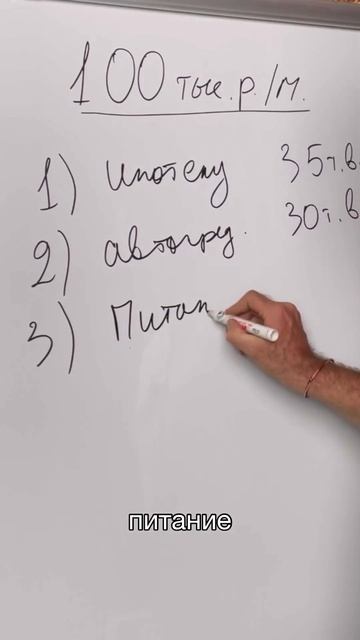 100 тыс.р./м.
1) Ипотеку 35т.в
2) автокред. 30т.в
3) Питан
питание